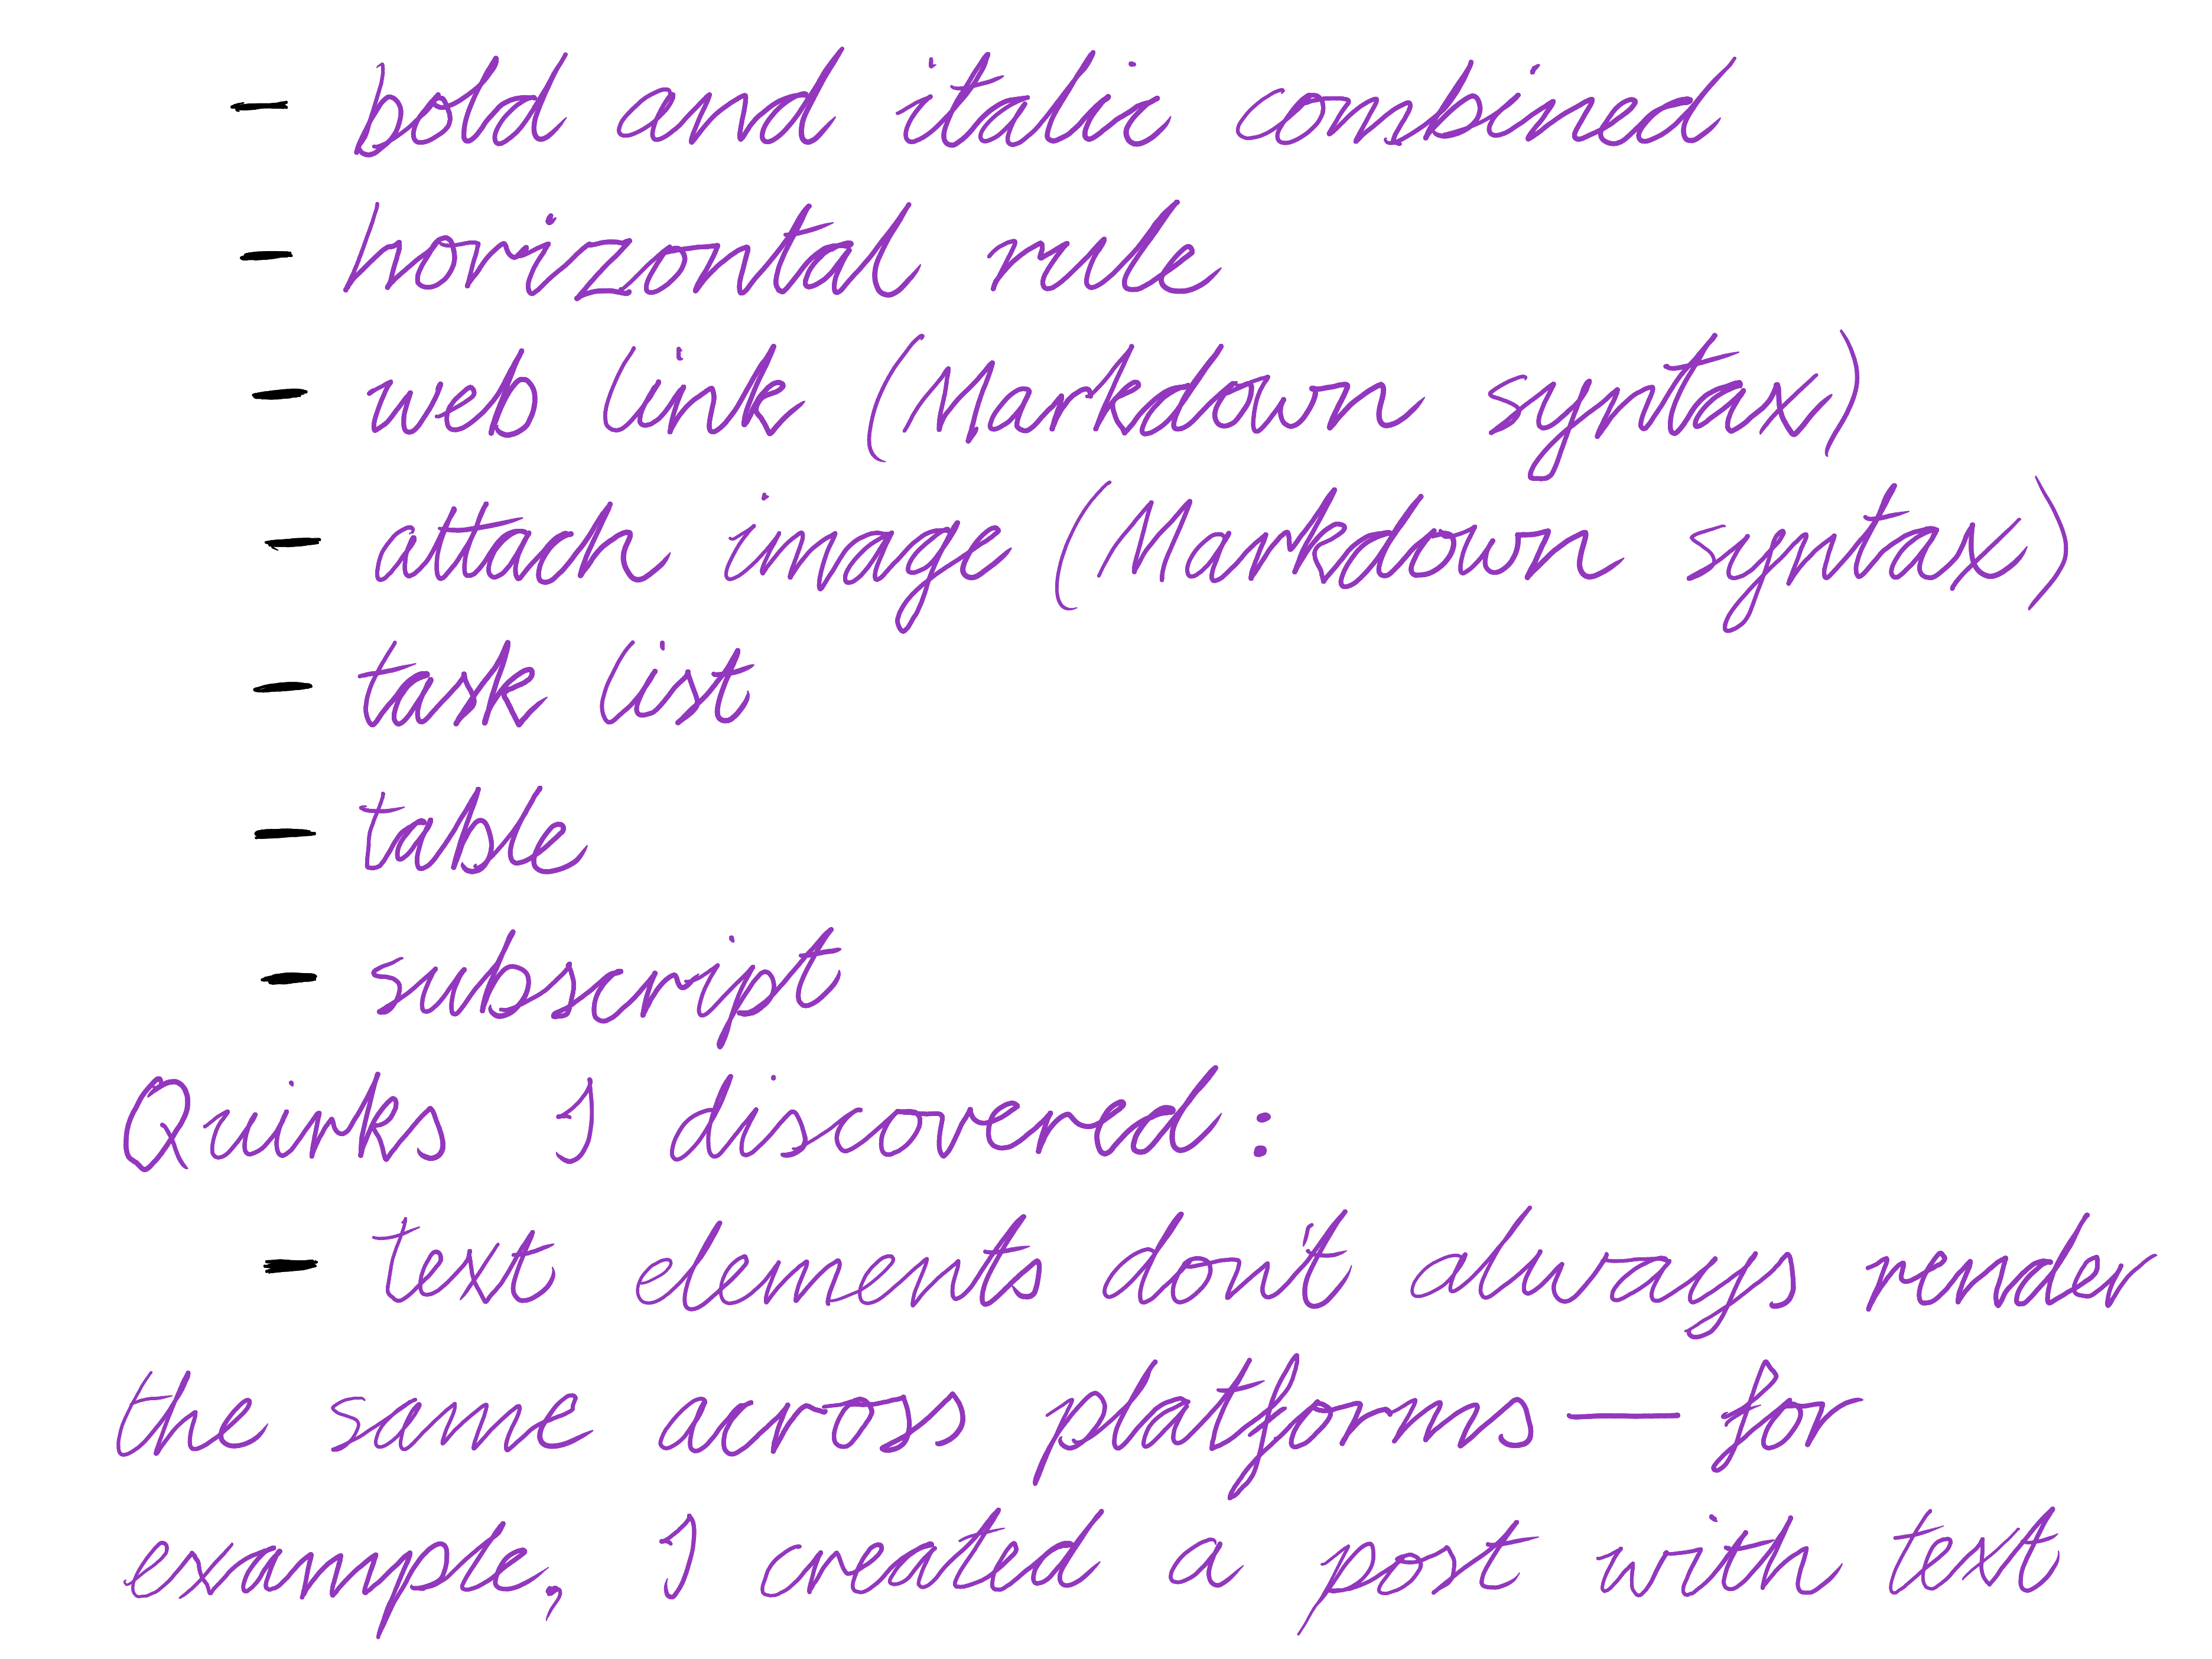 - bold and italic combined
- horizontal rule
- web link (Markdown syntax)
- attach image (Markdown syntax)
- task list
- table
- subscript
Quirks I discovered:
- text elements don't always render
the same across platforms — for
example, I created a post with text